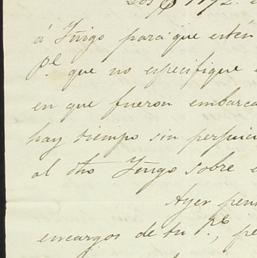 Los
á Yñigo para que estén
pª. que no especifique
en que fueron embarca
hay tiempo sin perjuici
al dho Yñigo sobre
Ayer
encargos de tu Pe., pe